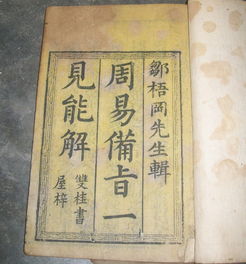 鄒梧岡先生輯
周易備旨一
見能解
雙桂書
屋梓